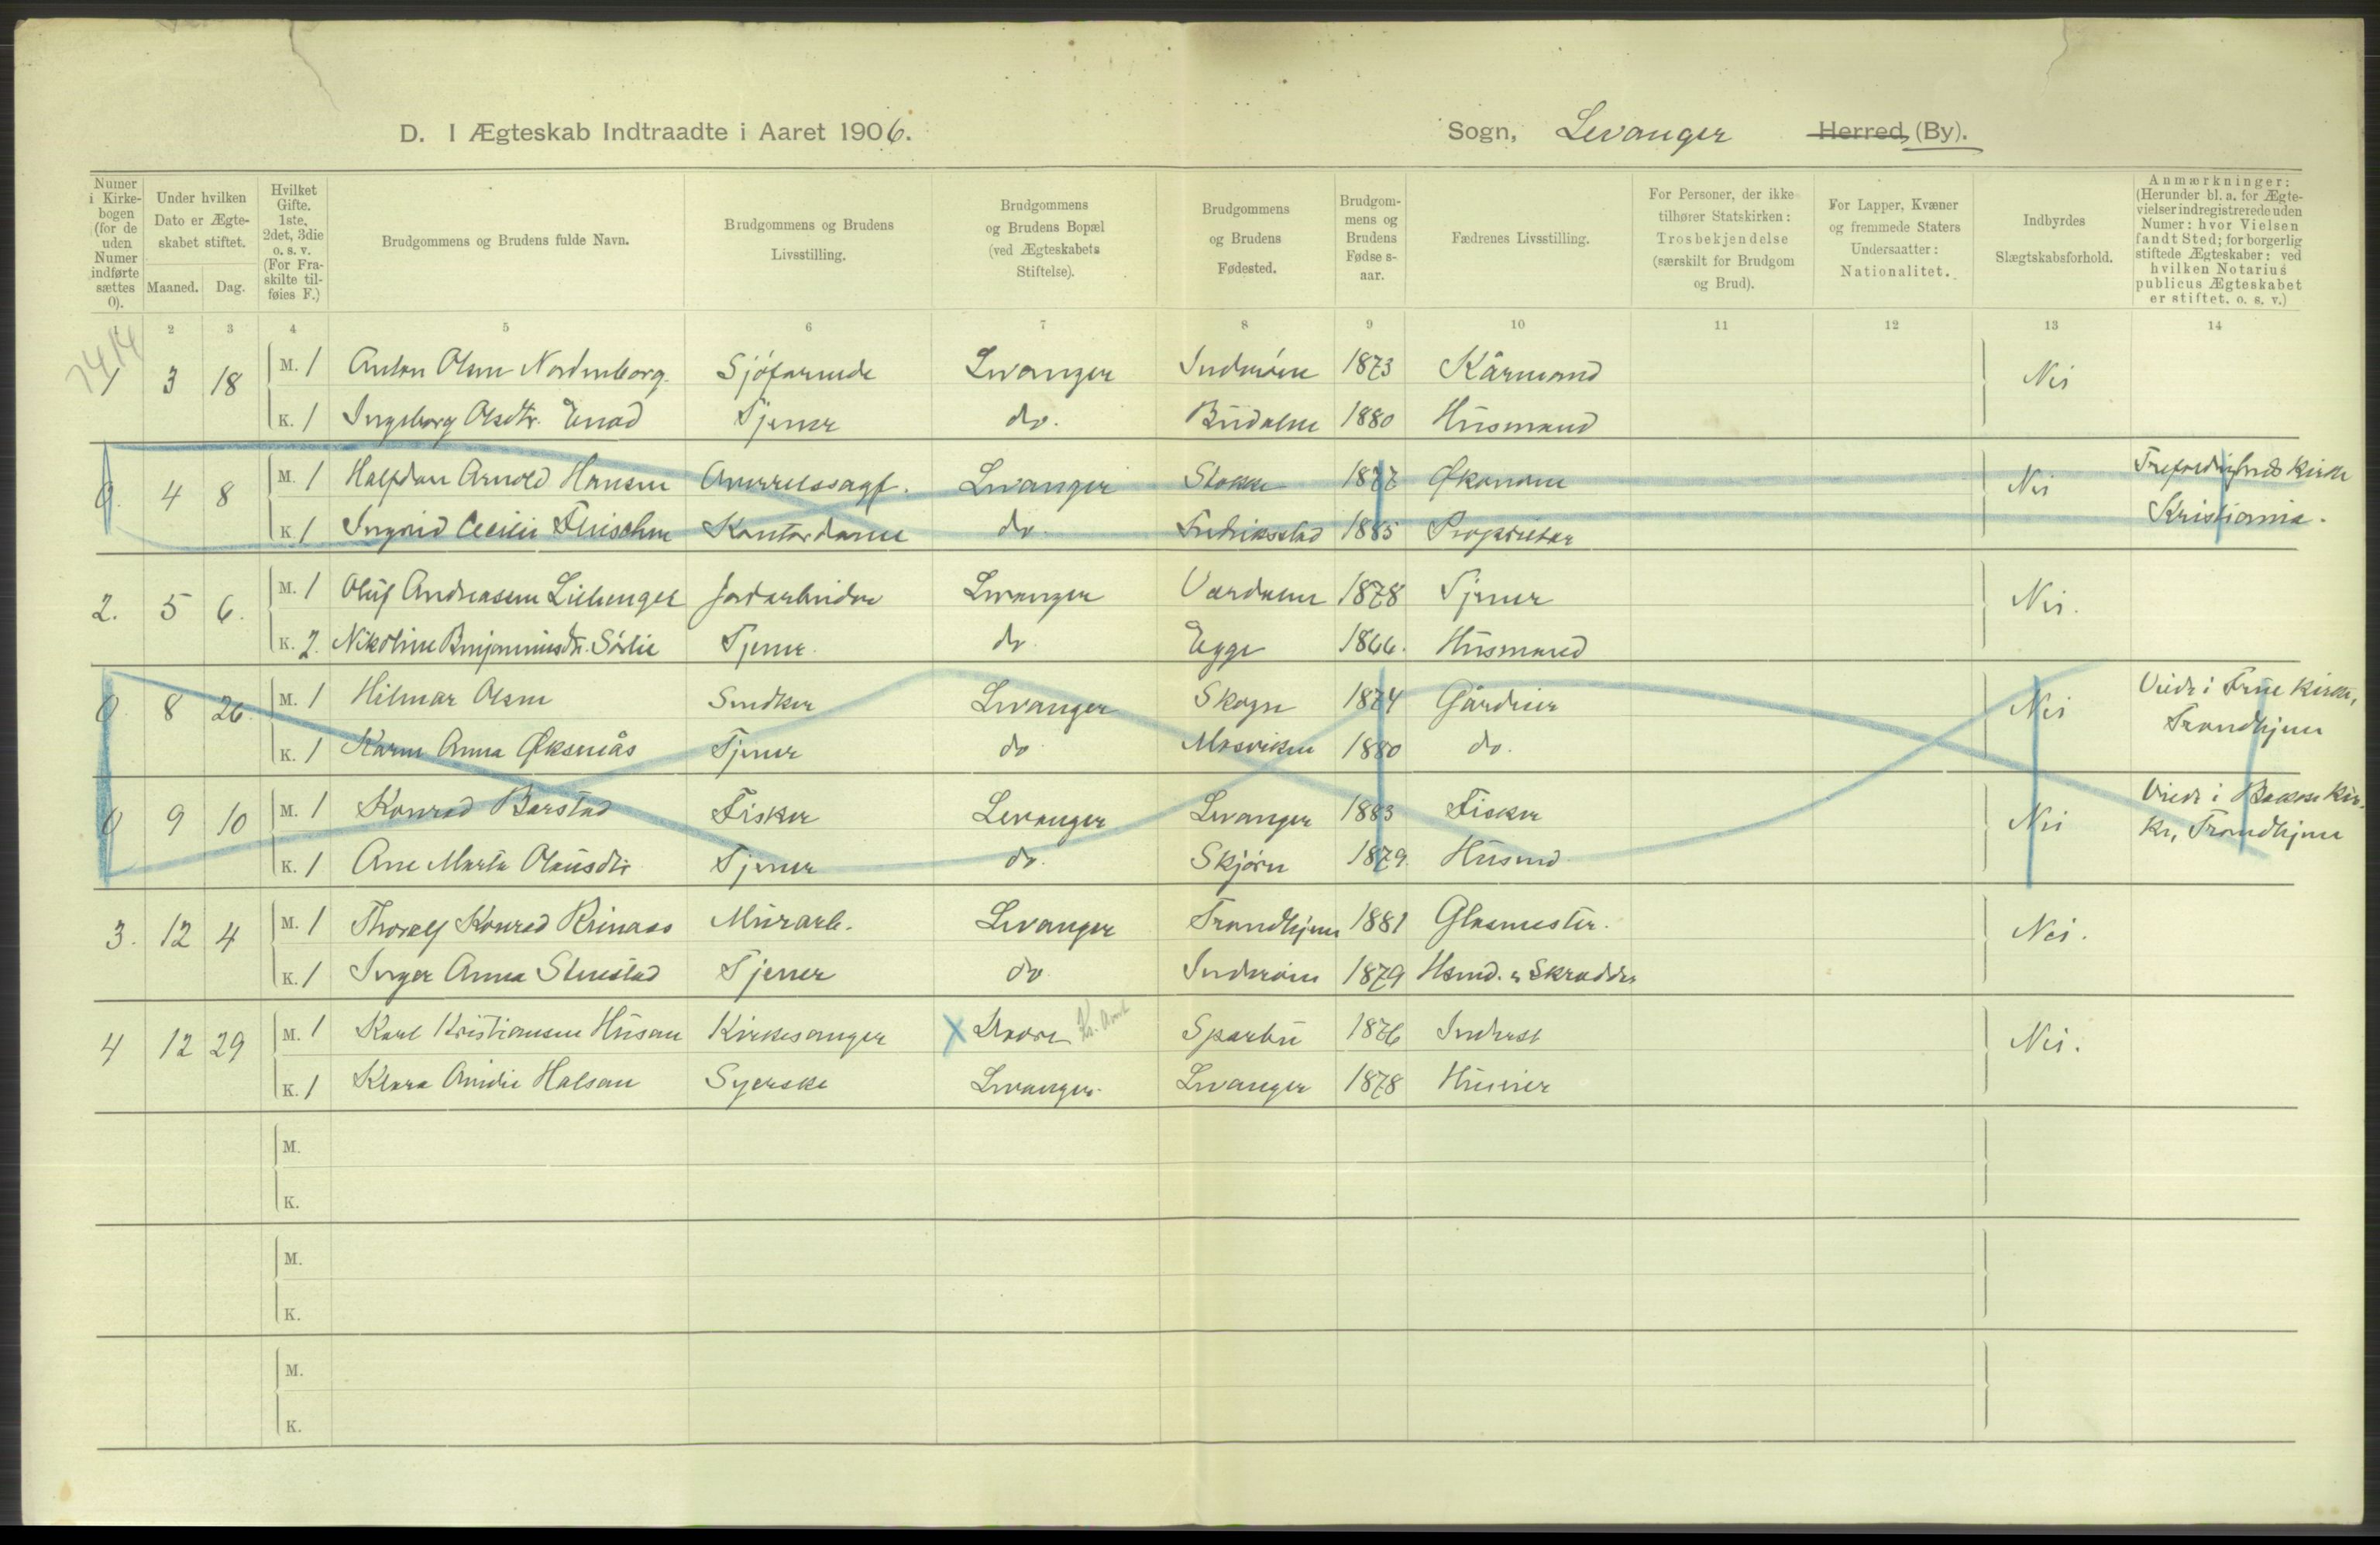 D. I Ægteskab Indtraadte i Aaret 1906. Sogn, Levanger Herred, (By).
Numer i Kirkebogen (for de uden Numer indførte sættes 0). Under hvilken Dato er Ægteskabet stiftet. Maaned. Dag. Hvilket Gifte. 1ste, 2det, 3die o. s. v. (For Fraskilte tilføies F.) Brudgommens og Brudens fulde Navn. Brudgommens og Brudens Livsstilling. Brudgommens og Brudens Bopæl (ved Ægteskabets Stiftelse). Brudgommens og Brudens Fødested. Brudgommens og Brudens Fødselsaar. Fædrenes Livsstilling. For Personer, der ikke tilhører Statskirken: Trosbekjendelse (særskilt for Brudgom og Brud). For Lapper, Kvæner og fremmede Staters Undersaatter: Nationalitet. Indbyrdes Slægtskabsforhold. Anmærkninger: (Herunder bl. a. for Ægtevielser indregistrerede uden Numer: hvor Vielsen fandt Sted; for borgerlig stiftede Ægteskaber: ved hvilken Notarius publicus Ægteskabet er stiftet. o. s. v.)
2 3 4 5 6 7 8 9 10 11 12 13 14
1 3 18 M. 1 Anton Olsen Nordenborg. Sjøfarende Levanger Inderøen 1873 Kårmand Nei
K. 1 Ingeborg Olsdtr. Enod Tjener do. Budalen 1880 Husmand
0. 4 8 M. 1 Halfdan Arnold Hansen Levanger Stokke 1877 Økonom Nei Trefoldighets Kirke
K. 1 Ingrid Cecilie Kontordame do Fredriksstad 1885 Proprietær Kristiania.
2. 5 6. M. 1 Oluf Andreassen Jordarbeider Levanger Værdalen 1878 Tjener Nei.
K. 2. Nikoline Benjaminsdtr. Sørlie Tjener. do Egge 1866. Husmand
0 8 26. M. 1 Hilmar Olsen Snedker Levanger Skogn 1874 Gårdeier Nei Viede i Frue Kirke,
K. 1 Karen Anna Øksnås Tjener do Mosviken 1880 do. Trondhjem
0 9 10 M. 1 Konrad Barstad Fisker Levanger Levanger 1883 Fisker Nei Viede i Bakke Kir-
K. 1 Ane Marta Olausdtr Tjener do. Skjørn 1879. Husmd ke, Trondhjem
3. 12 4 M. 1 Thoralf Konrad Reinaas Murarb. Levanger Trondhjem 1881 Glasmester. Nei.
K. 1 Inger Anna Stenstad Tjener do Inderøen 1879 Hsmd. & Skrædder
4 12 29 M. 1 Karl Kristiansen Husan Kirkesanger X Sparbu 1876 Inderst Nei.
K. 1 Klara Amdie Halsan Syerske Levanger. Levanger 1878 Huseier
M.
K.
M.
K.
M.
K.